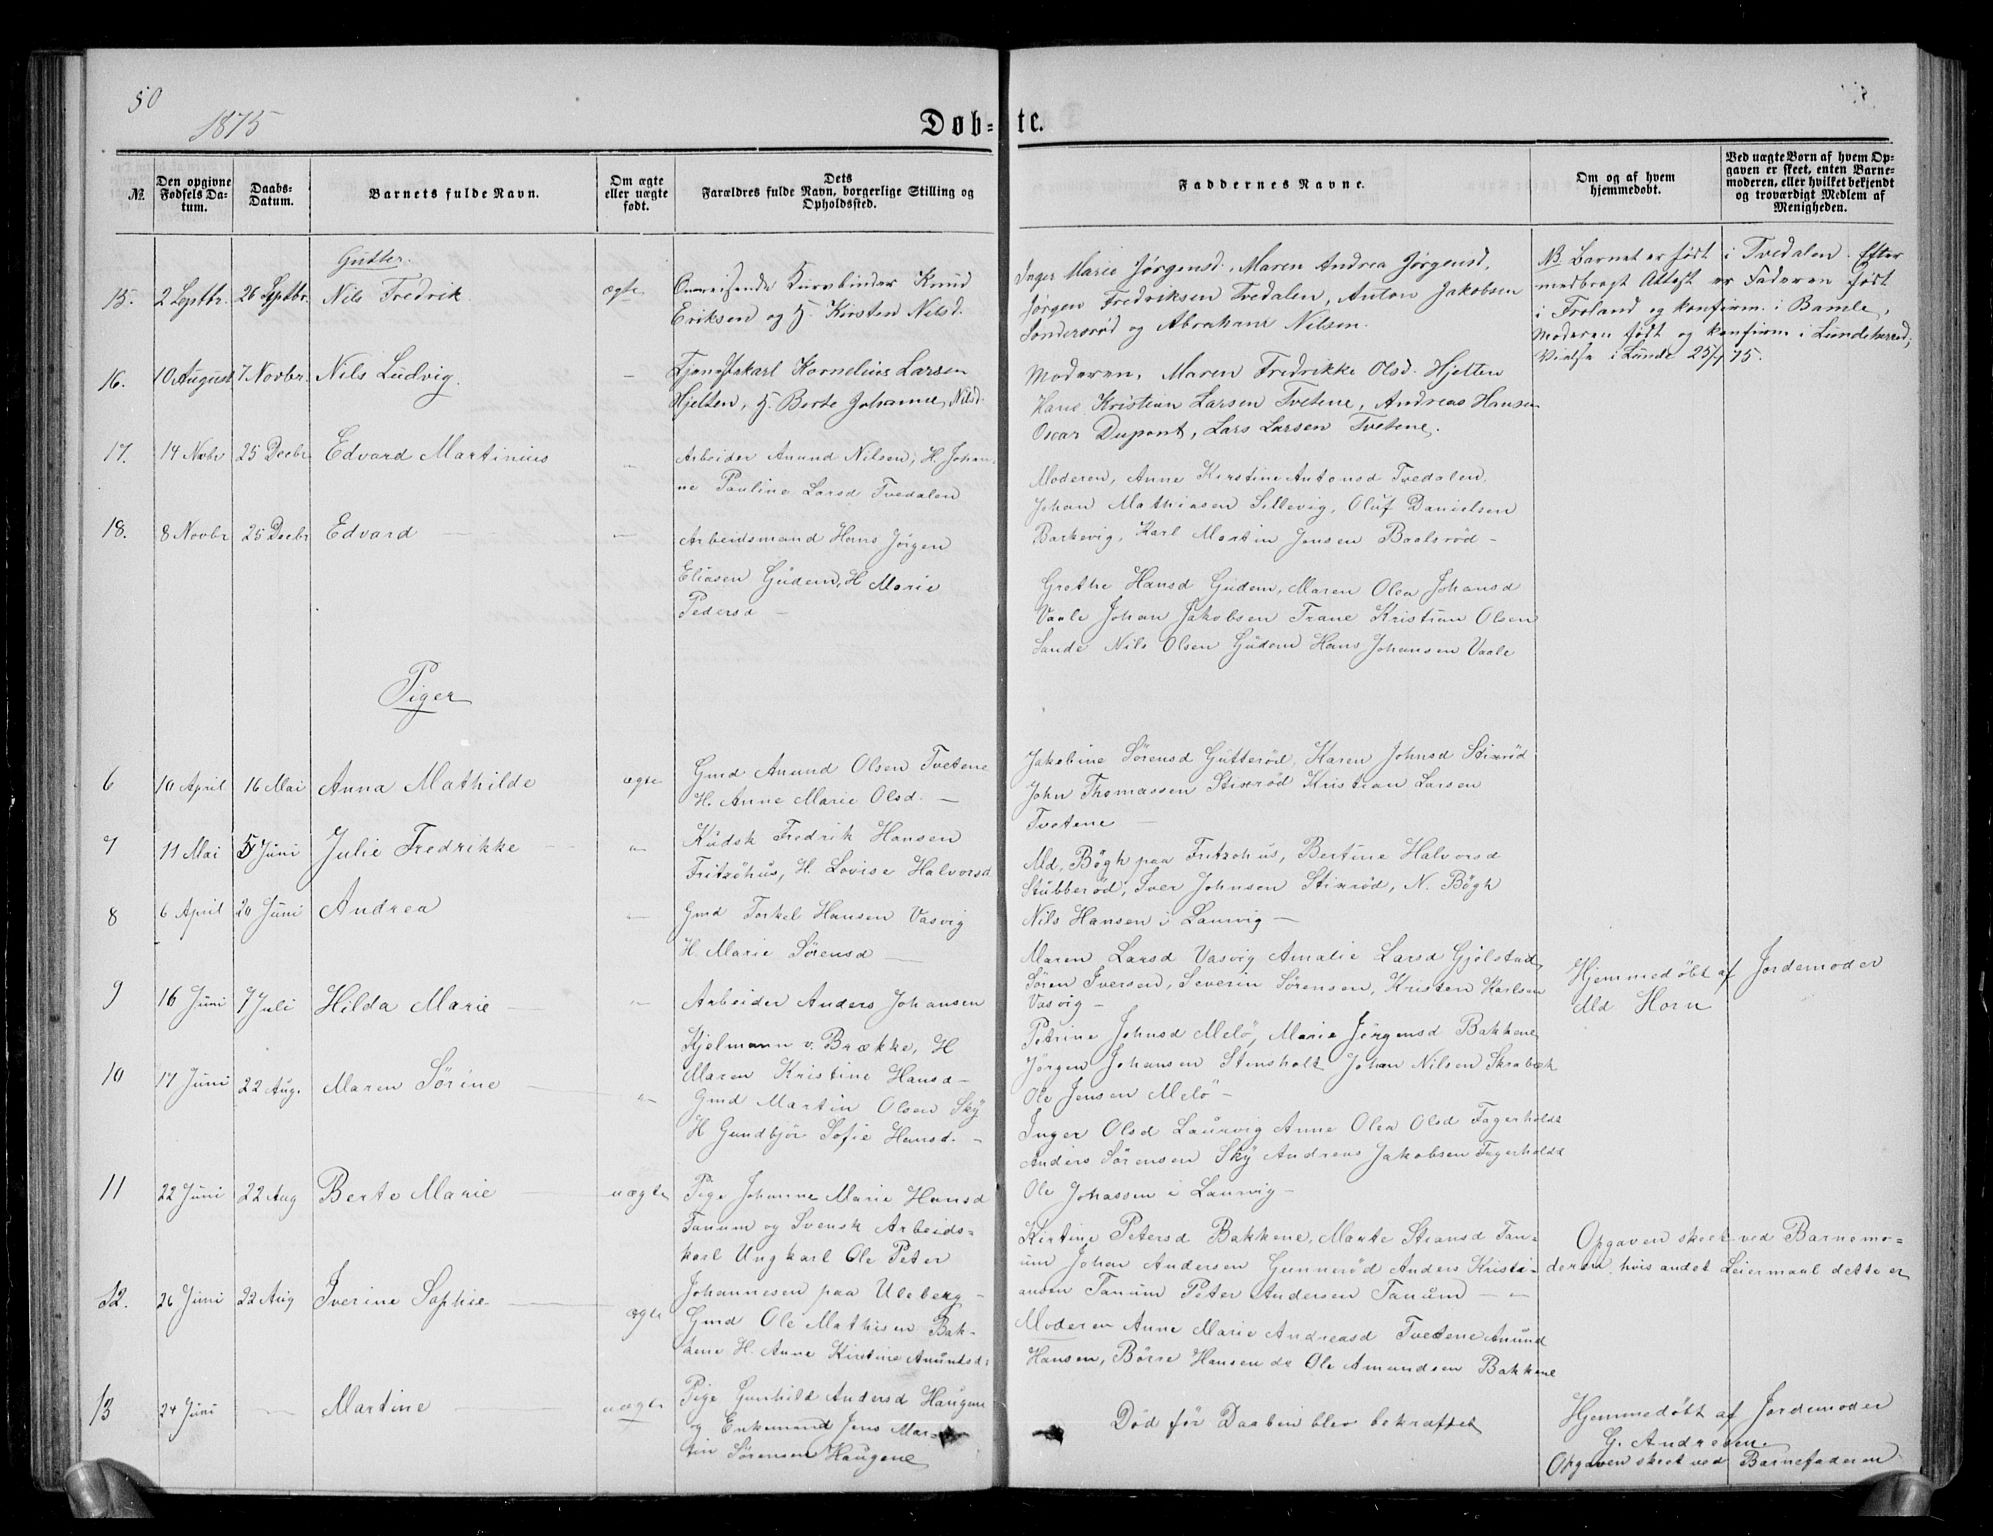 50
1875
Døb-te.
№
Den opgivne Fødsels Datum.
Daabs-Datum.
Barnets fulde Navn.
Om ægte eller uægte født.
Dets Forældres fulde Navn, borgerlige Stilling og Opholdssted.
Faddernes Navne.
Om og af hvem hjemmedøbt.
Ved uægte Børn af hvem Opgaven er skeet, enten Barnemoderen, eller hvilket bekjendt og troværdigt Medlem af Menigheden.
Gutter.
15. 2 Septbr. 26 Septbr. Nils Fredrik ægte
Omreisende Kurvbinder Knud
Eriksen og H. Kirsten Nilsd.
Inger Marie Jørgensd. Maren Andrea Jørgensd,
Jørgen Fredriksen Tvedalen, Anton Jakobsen
Søndersrød og Abraham Nilsen.
NB Barnet er født i Tvedalen. Efter
medbragt Attest er Faderen født
i Froland og konfirm. i Bamle,
Moderen født og konfirm i Lundeherred,
Vielse i Lunde 25/4 75.
16. 10 August 7 Novbr. Nils Ludvig. —
Tjenestekarl Kornelius Larsen
Hjelten, H. Berte Johanne Nilsd.
Moderen, Maren Fredrikke Olsd. Hjelten
Hans Kristian Larsen Tvetene, Andreas Hansen
Oscar Dupont, Lars Larsen Tvetene.
17. 14 Novbr 25 Decbr. Edvard Martinius —
Arbeider Anund Nilsen, H. Johan-
ne Pauline Larsd Tvedalen
Moderen, Anne Kirstine Antonsd Tvedalen,
Johan Mathiasen Sillevig, Oluf Danielsen
Barkevig, Karl Martin Jensen Baalsrød —
18. 8 Novbr 25 Decbr Edvard — —
Arbeidsmand Hans Jørgen
Eliasen Gudem, H Marie
Pedersd —
Grethe Hansd Gudem, Maren Olea Johansd
Vaale Johan Jakobsen Trane Kristian Olsen
Sande Nils Olsen Gudem Hans Johansen Vaale
Piger
6 10 April 16 Mai Anna Mathilde ægte
Gmd Anund Olsen Tvetene
H. Anne Marie Olsd. —
Jakobine Sørensd Gutterød, Karen Johnsd Stixrød
John Thomassen Stixrød Kristian Larsen
Tvetene —
7 11 Mai 5 Juni Julie Fredrikke — "
Kudsk Fredrik Hansen
Fritzöhus, H. Lovise Halvorsd
Md. Bøgh paa Fritzöhus, Bertine Halvorsd
Stubberød, Iver Johnsen Stixrød, N. Bøgh
Nils Hansen i Laurvig —
8 6 April 20 Juni Andrea "
Gmd Torkel Hansen Vasvig
H. Marie Sørensd —
Maren Larsd Vasvig Amalie Larsd Gjølstad
Søren Iversen, Severin Sørensen, Kristen Karlsen
Vasvig —
9 16 Juni 7 Juli Hilda Marie — "
Arbeider Anders Johansen
Kjelmann v. Brække, H
Maren Kristine Hansd —
Petrine Johnsd Melö, Marie Jörgensd Bakkene
Jørgen Johansen Stensholt Johan Nilsen Skrabæk
Ole Jensen Melö —
Hjemmedøbt af Jordemoder
Md Horn
10 17 Juni 22 Aug. Maren Sørine — "
Gmd Martin Olsen Sky
H Gundbjør Sofie Hansd. —
Inger Olsd Laurvig Anne Olea Olsd Fagerholdt
Anders Sørensen Sky Andreas Jakobsen Fagerholdt
Ole Johassen i Laurvig —
11 22 Juni 22 Aug Berte Marie — uægte
Pige Johanne Marie Hansd
Tanum og Svensk Arbeids-
karl Ungkarl Ole Peter
Johannesen paa Uleberg —
Kirtine Petersd Bakkene, Marte Stiansd Tan-
um Johan Andersen Gunnerød Anders Kristi-
ansen Tanum Peter Andersen Tanum —
Opgaven skeet ved Barnemo-
deren, hvis andet Leiermaal dette er
12. 26 Juni 22 Aug Iverine Sophie — ægte
Gmd Ole Mathisen Bak-
kene H. Anne Kirtine Anundsd.
Moderen Anne Marie Andreasd Tvetene Anund
Hansen, Börre Hansen do Ole Amundsen Bakkene
13 24 Juni — Martine — uægte
Pige Gunhild Andersd Haugene
og Enkemand Jens Mar-
tin Sørensen Haugene
Død før Daaben blev bekræftet
Hjemmedøbt af Jordemoder
G. Andresen.
Opgaven skeet ved Barnefaderen